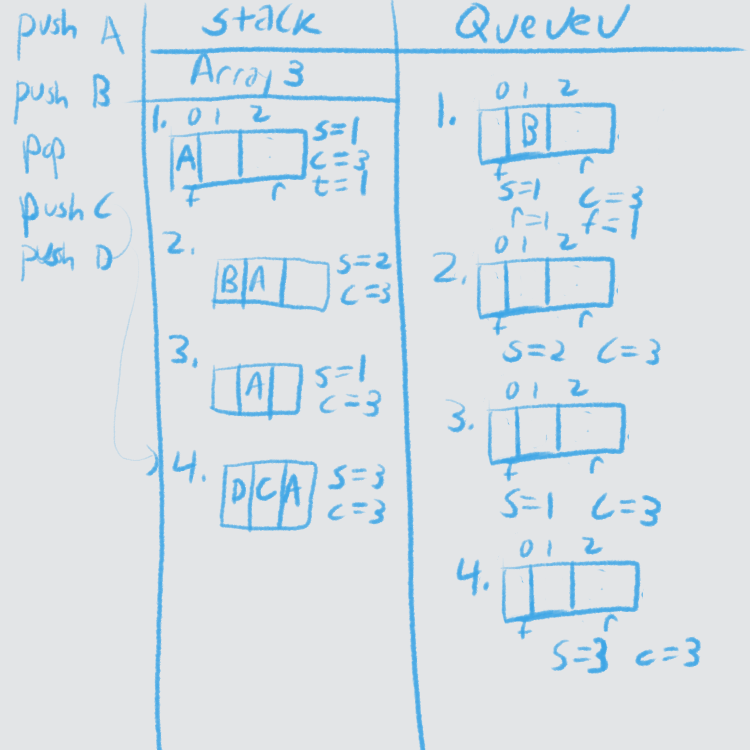 push A
push B
pop
push C
push D
stack
Array 3
1. 0 1 2
A
s=1
c=3
t=1
f r
2.
B A
s=2
c=3
3.
A
s=1
c=3
4.
D C A
s=3
c=3
Queueu
1. 0 1 2
B
f r
s=1 c=3
r=1 f=1
0 1 2
2.
f r
s=2 c=3
0 1 2
3.
f r
s=1 c=3
0 1 2
4.
f r
s=3 c=3